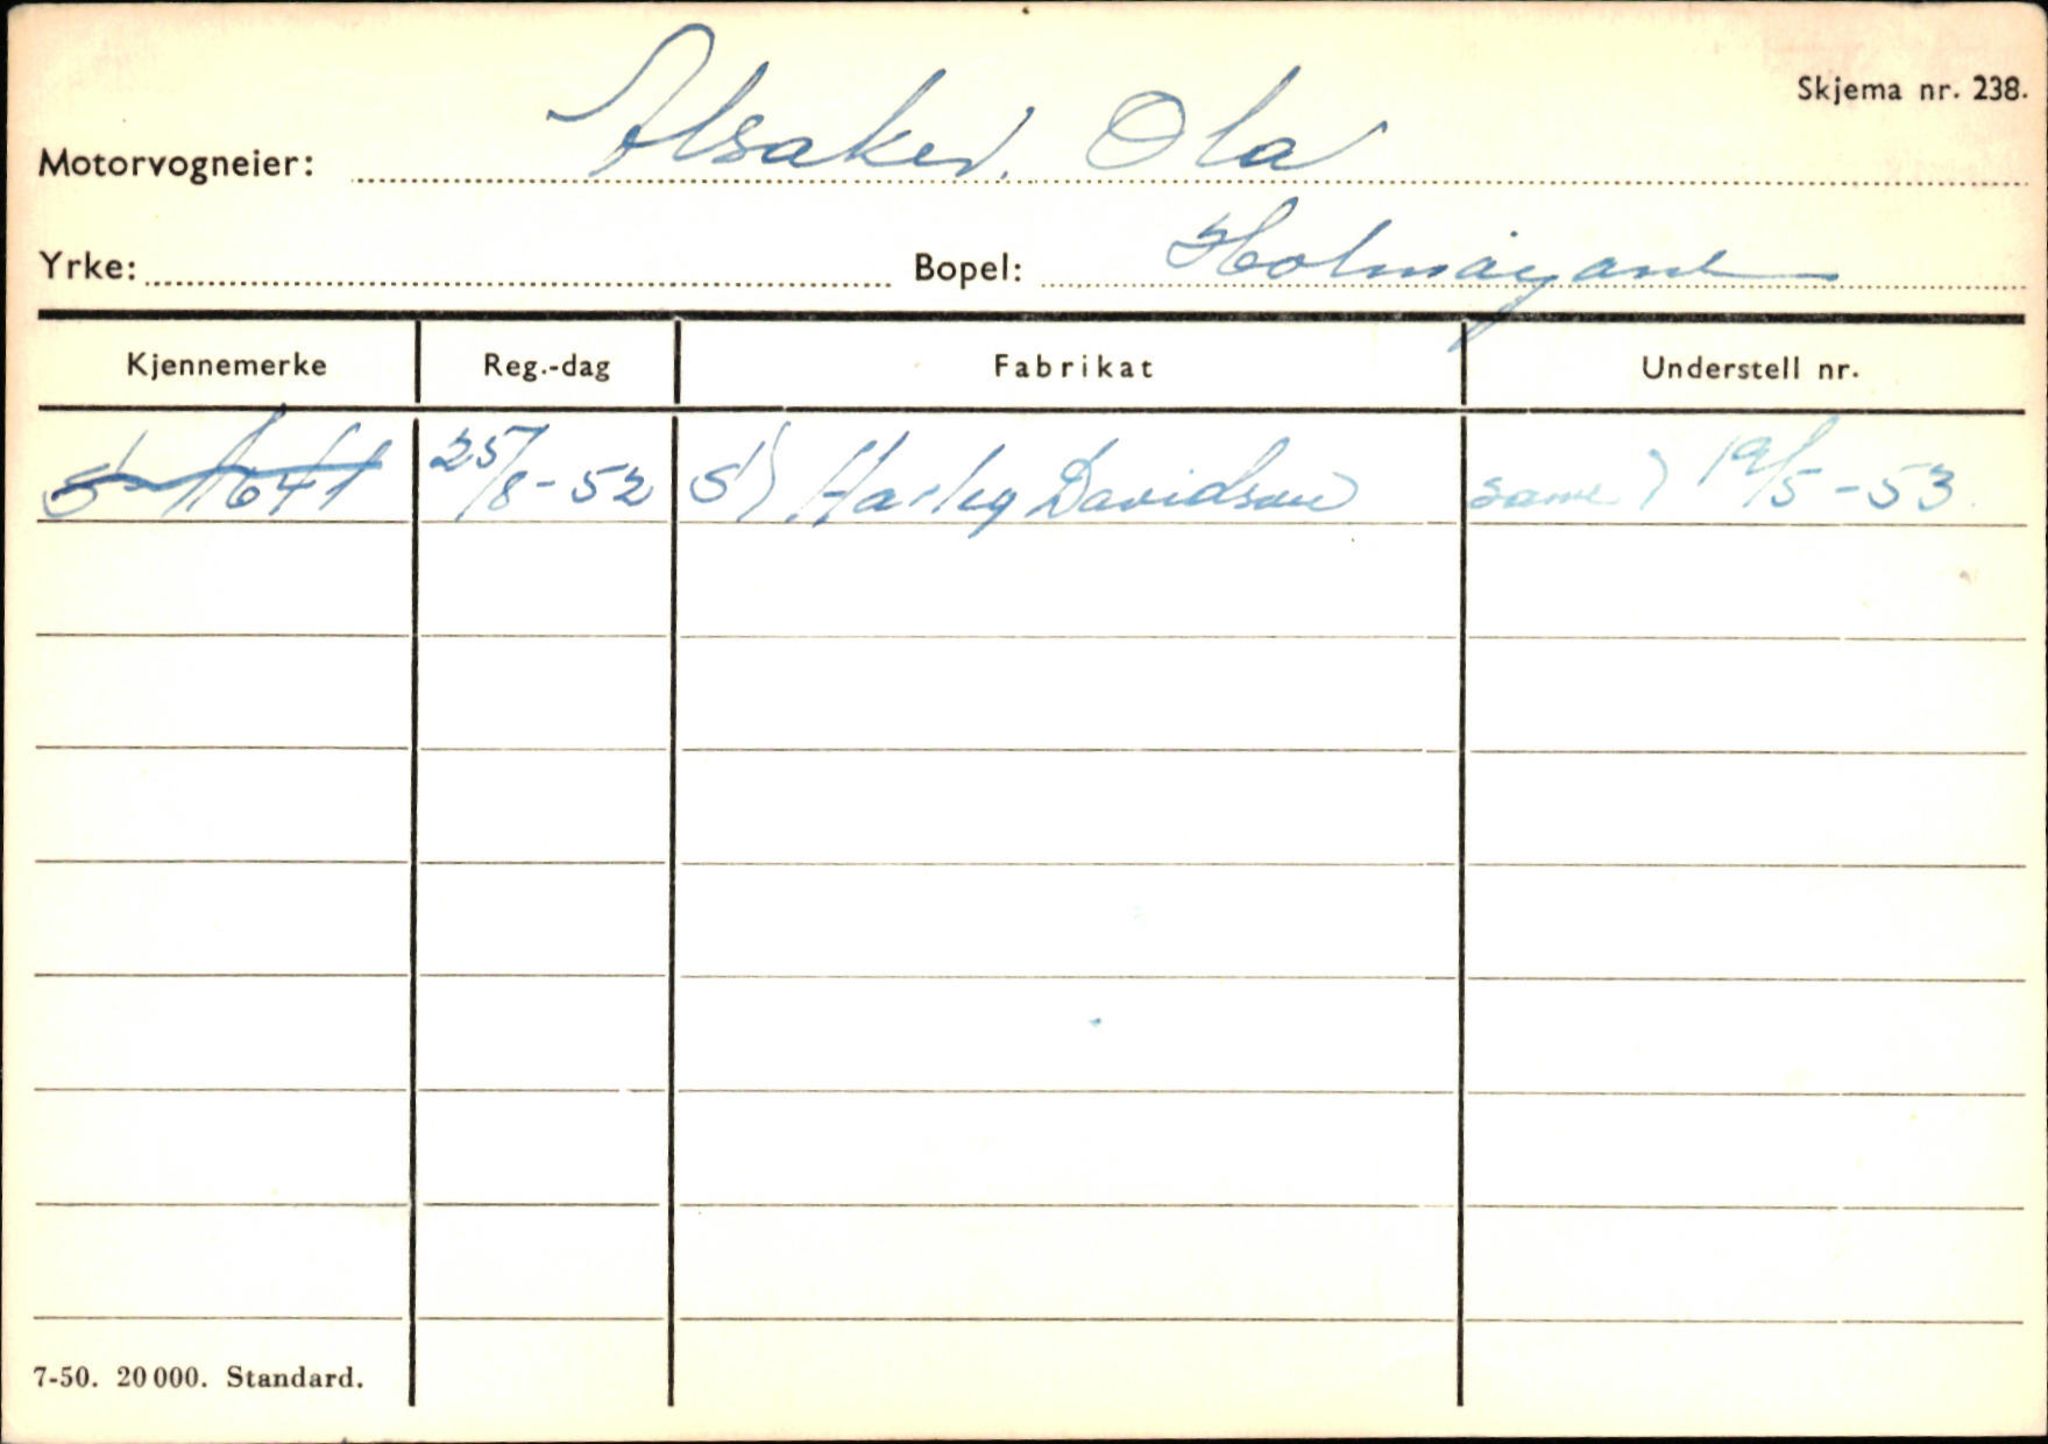 Skjema nr. 238.
Motorvogneier: Alsaker, Ola
Yrke: Bopel: Holmøyane
Kjennemerke Reg.-dag Fabrikat Understell nr.
S-1641 25/8-52 S) Harley Davidson same) 19/5-53
7-50. 20000. Standard.